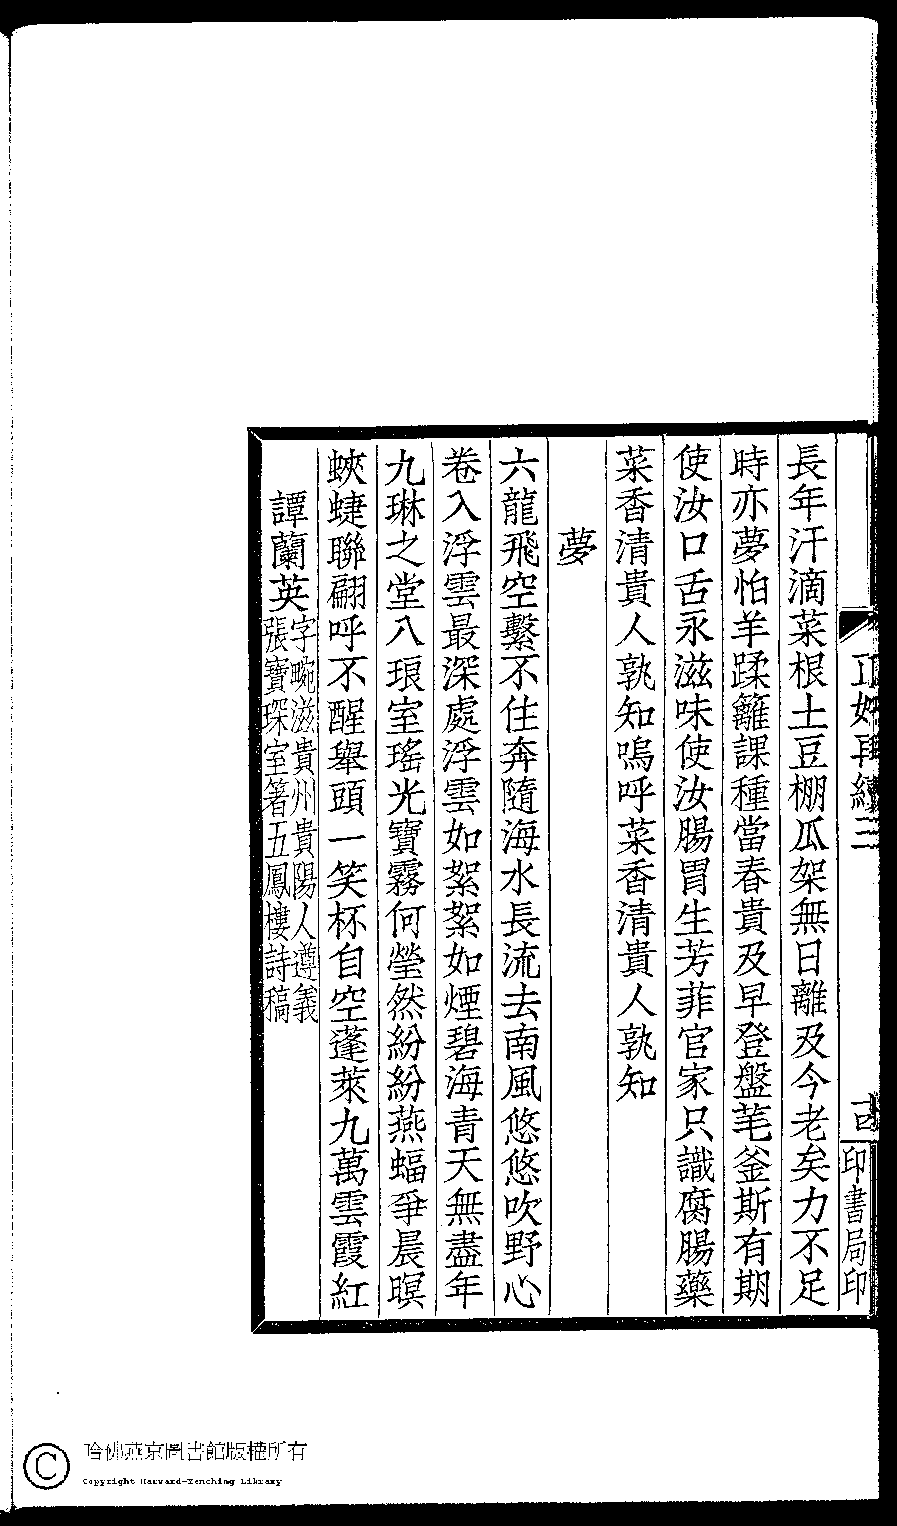 長年汗滴菜根土豆棚瓜架無日離及今老矣力不足
時亦夢怕羊蹂籬課種當春貴及早登盤芼釜斯有期
使汝口舌永滋味使汝腸胃生芳菲官家只識腐腸藥
菜香清貴人孰知嗚呼菜香清貴人孰知
夢
六龍飛空繫不住奔隨海水長流去南風悠悠吹野心
卷入浮雲最深處浮雲如絮絮如煙碧海青天無盡年
九琳之堂八琅室瑤光寶霧何瑩然紛紛燕蝠爭晨暝
蛺蜨聯翩呼不醒舉頭一笑杯自空蓬萊九萬雲霞紅
譚蘭英字畹滋貴州貴陽人遵義
張寶琛室箸五鳳樓詩稿
印書局印
哈佛燕京圖書館版權所有
Copyright Harvard-Yenching Library